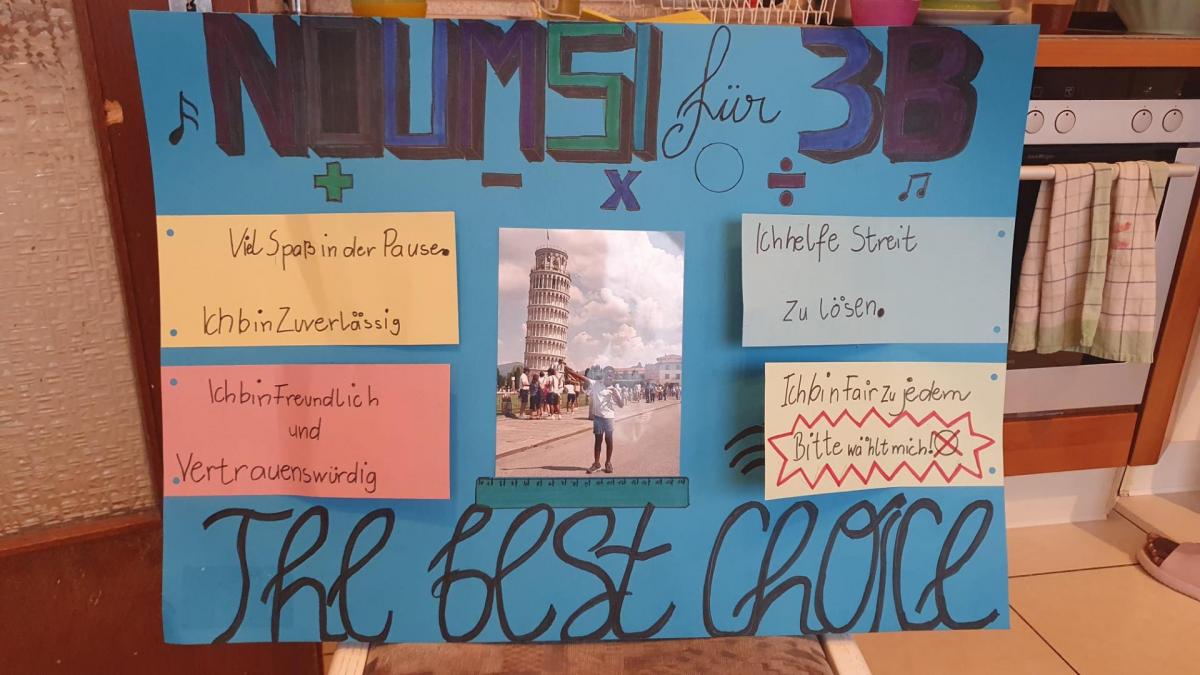 NOUMSI für 3B
+ - x ÷
Viel Spaß in der Pause.
Ich bin Zuverlässig
Ich bin Freundlich
und
Vertrauenswürdig
Ich helfe Streit
Zu lösen.
Ich bin Fair zu jedem
Bitte wählt mich!
The best Choice